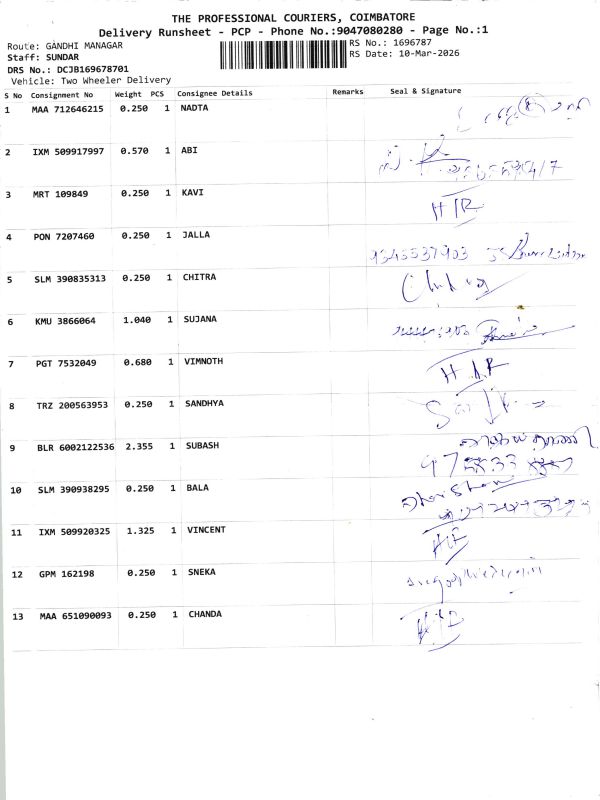 THE PROFESSIONAL COURIERS, COIMBATORE
Delivery Runsheet - PCP - Phone No.:9047080280 - Page No.:1
Route: GANDHI MANAGAR
RS No.: 1696787
Staff: SUNDAR
RS Date: 10-Mar-2026
DRS No.: DCJB169678701
Vehicle: Two Wheeler Delivery
S No Consignment No Weight PCS Consignee Details Remarks Seal & Signature
1 MAA 712646215 0.250 1 NADTA
2 IXM 509917997 0.570 1 ABI
3 MRT 109849 0.250 1 KAVI
4 PON 7207460 0.250 1 JALLA
5 SLM 390835313 0.250 1 CHITRA
6 KMU 3866064 1.040 1 SUJANA
7 PGT 7532049 0.680 1 VIMNOTH
8 TRZ 200563953 0.250 1 SANDHYA
9 BLR 6002122536 2.355 1 SUBASH
10 SLM 390938295 0.250 1 BALA
11 IXM 509920325 1.325 1 VINCENT
12 GPM 162198 0.250 1 SNEKA
13 MAA 651090093 0.250 1 CHANDA